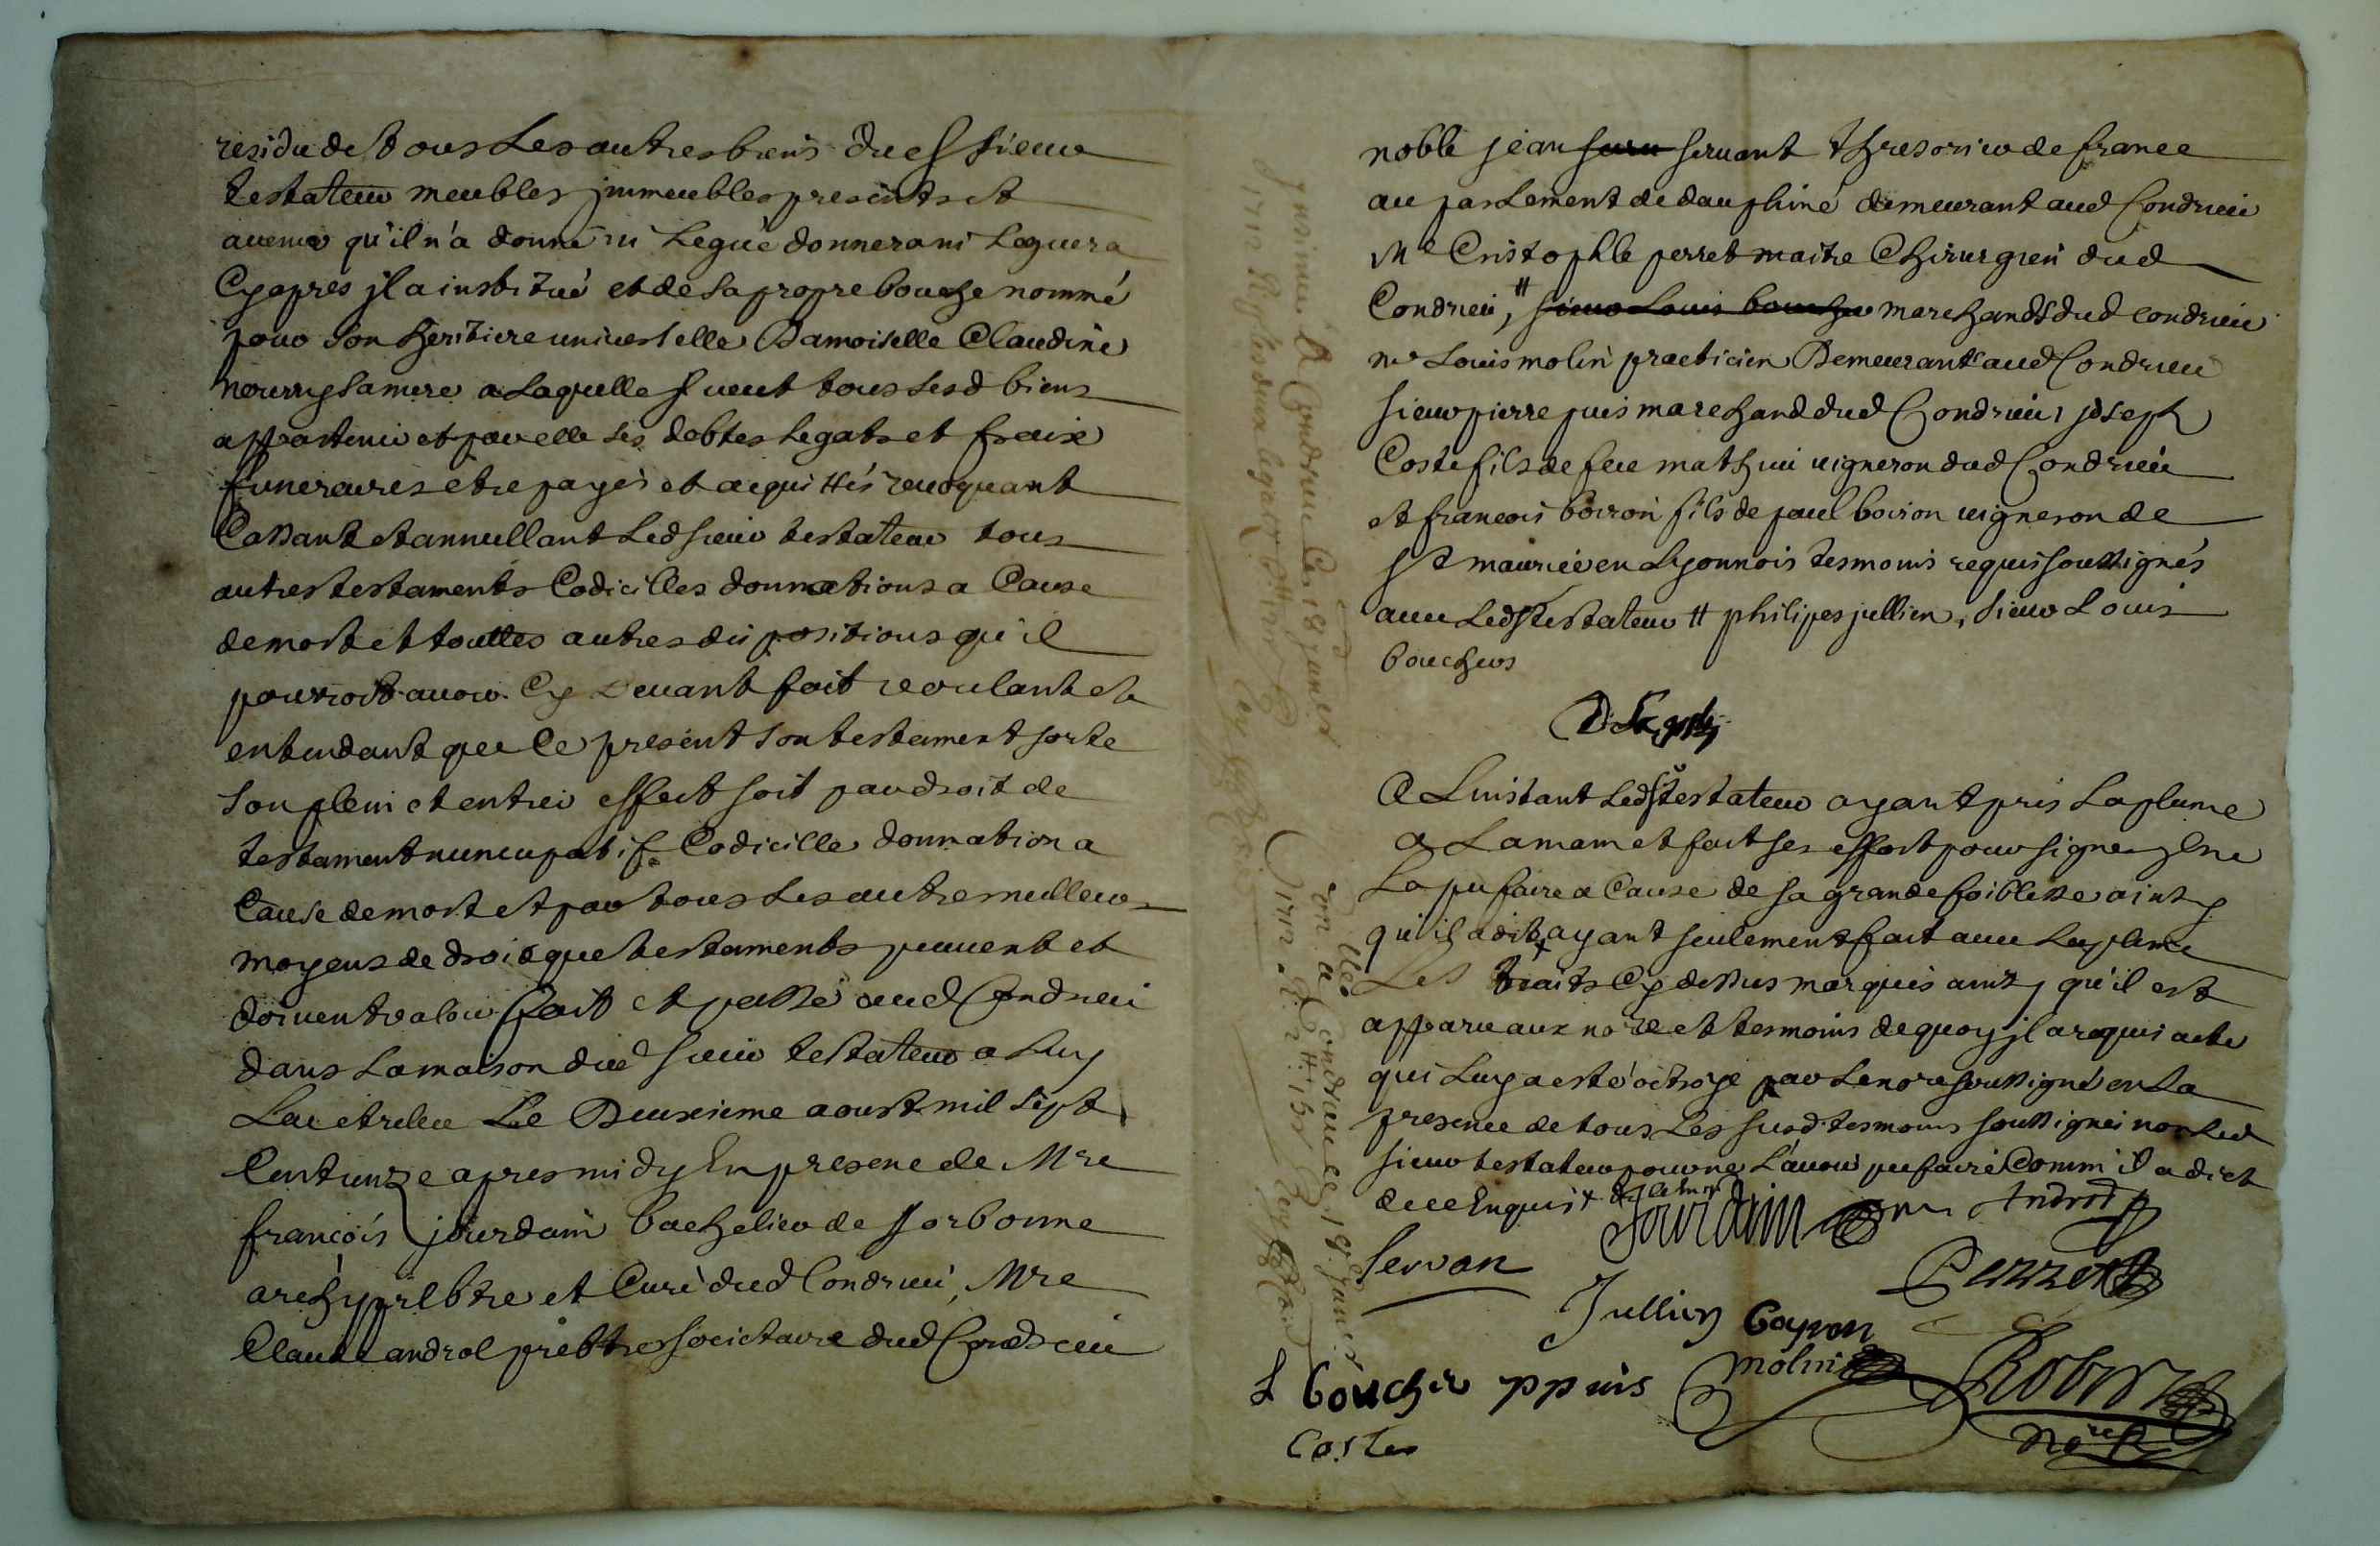 residu de tous Les autres biens dud Sieur
testateur meubles jmmeubles presents et
avenir qu'il n'a donné ni Legué donnera ni Leguera
Cy apres jl a institué et de sa propre bouche nommé
pour son heritiere universelle Damoiselle Claudine
nourry sa mere a Laquelle jl veut tous lesd biens
appartenir et par elle ses debtes legats et fraix
funeraires etre payés et acquittés revoquant
Cassant et annullant Led sieur testateur tous
autres testaments Codicilles donnations a Cause
de mort et touttes autres dispositions qu'il
pourroit avoir Cy Devant fait voulant et
entendant que Ce present son testament sorte
son plein et entier effect soit par droit de
testament nuncupatif Codicille donnation a
Cause de mort et par tous Les autres meilleurs
moyens de droit que testaments peuvent et
doivent valoir fait et passé aud Condrieu
dans La maison dud sieur testateur a Luy
Leu et releu Le Deuxieme aoust mil sept
Cent unze apres midy En presence de Mre
françois jourdain bachelier de sorbonne
archyprebtre et Curé dud Condrieu, Mre
Claude androl prebtre societaire dud Condrieu
noble jean servant thresorier de france
au parlement de dauphiné demeurant aud Condrieu
Me Cristophle perret maitre Chirurgien dud
Condrieu, # sieur Louis boucher marchands dud condrieu
me Louis molin practicien Demeurant aud Condrieu
sieur pierre puis marchand dud Condrieu, joseph
Coste fils de feu mathieu vigneron dud Condrieu
et françois boiron fils de paul boiron vigneron de
st maurice en Lyonnois tesmoins requis soussignés
avec Led Sr testateur # philipes jullien, sieur Louis
bouchers
A L'instant led Sr testateur ayant pris La plume
a La main et fait ses effort pour signer jl ne
La pu faire a Cause de sa grande foiblesse ainsy
qu'il a dit, ayant seulement fait avec La plume
Les traits Cy dessus marqués ainsy qu'il est
apparu aux nore et tesmoins de quoy jl a requis acte
qui Luy a esté octroyé par Le nore soussigné en La
presence de tous Les susd. tesmoins soussignés non Led
sieur testateur pour ne L'avoir pu faire Comm' il a dict
de ce Enquis
Jourdain Androl
Servan Perret
Jullien Boyron
L Boucher ppuis molin Robert
Costes nore
Jnsinué A Condrieu Le 18 janvier
1712
Condrieu le 18e Janvier
1712